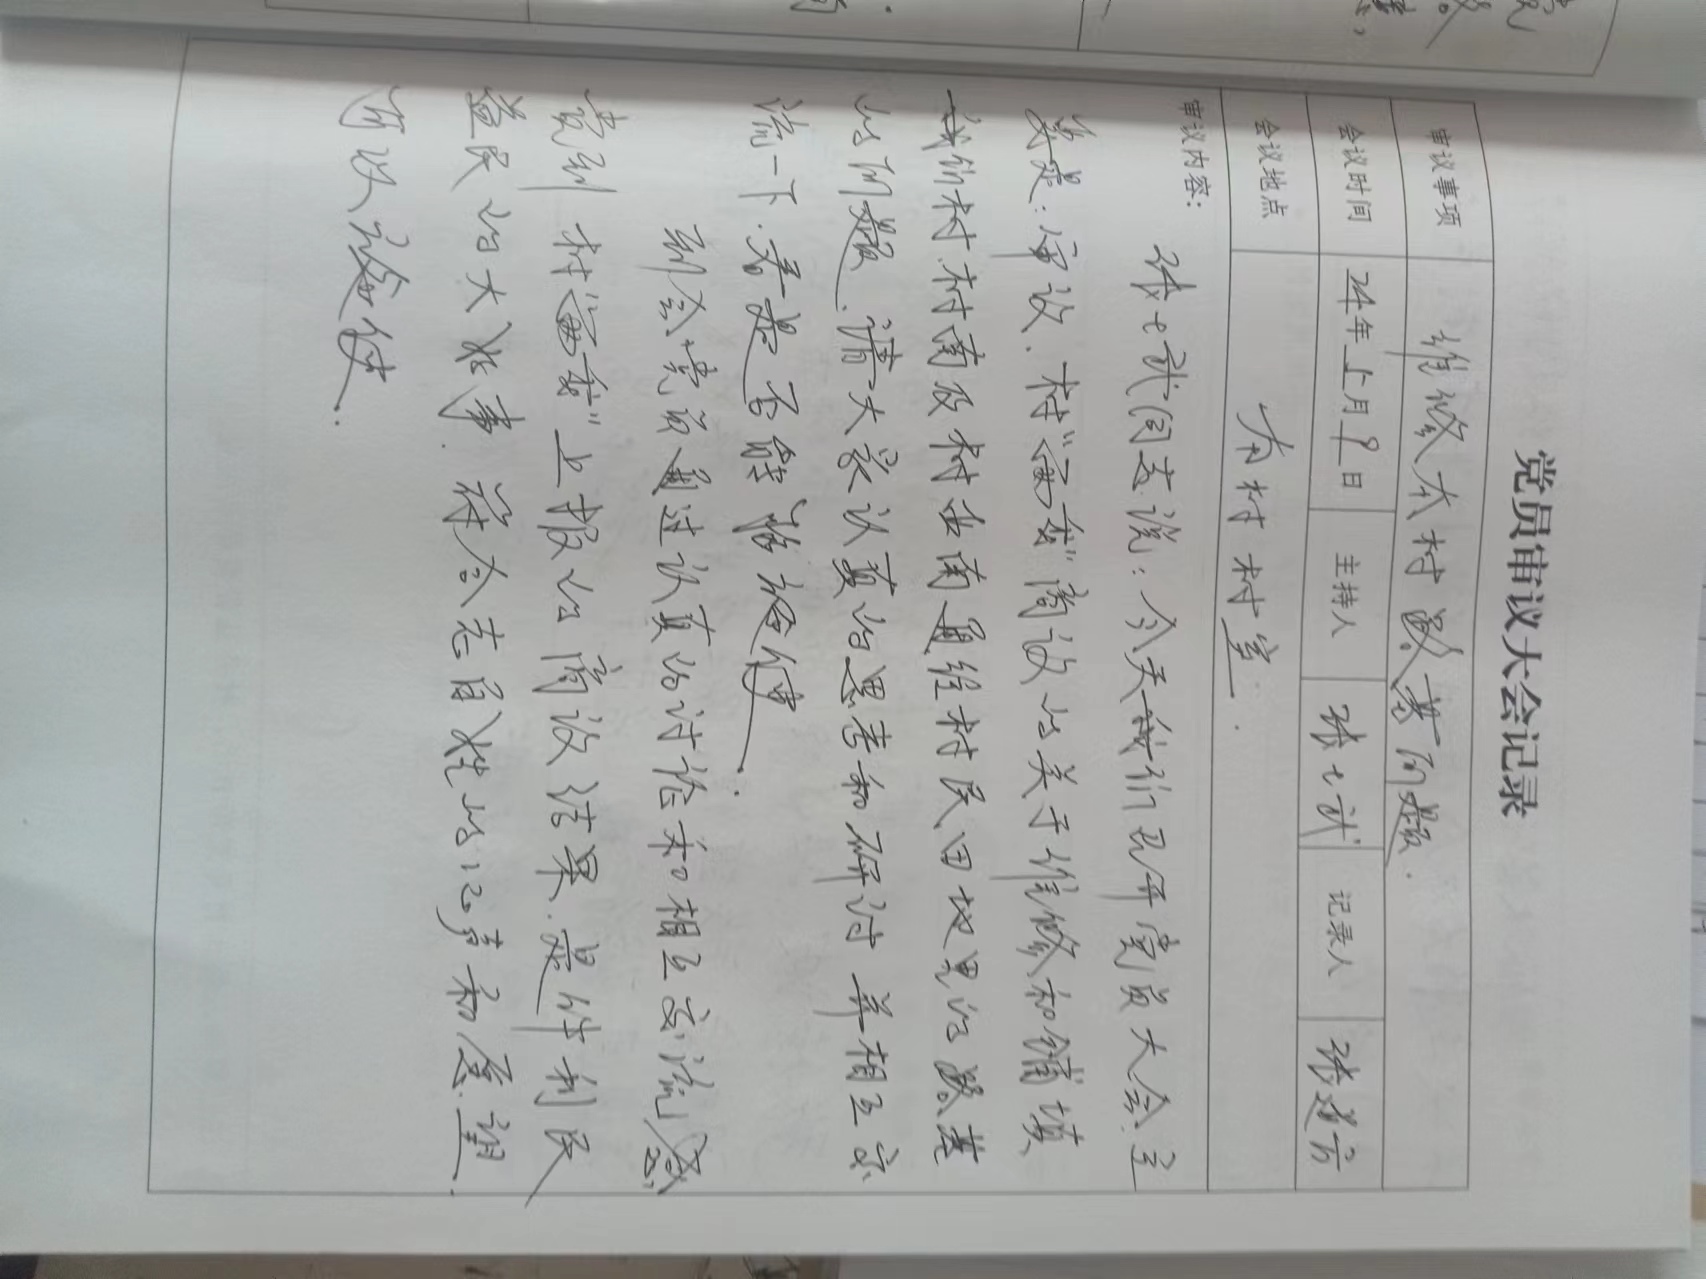 党员审议大会记录
审议事项 维修本村路基问题.
会议时间 24年上月9日 主持人 张七武 记录人 张建
会议地点 本村村室.
审议内容:
张七武同志说:今天我们召开党员大会.主
要是:审议.村“两委”商议的关于维修和铺填
我们村村南及村西南直经村民田地里的路基
的问题.请大家认真的思考和研讨并相互交
流一下.看是否能够施使.
到会党员通过认真的讨论和相互交流感
觉到村“两委”上报的商议结果.是件利民
益民的大好事.符合老百姓的心声和愿望.
可以施使.